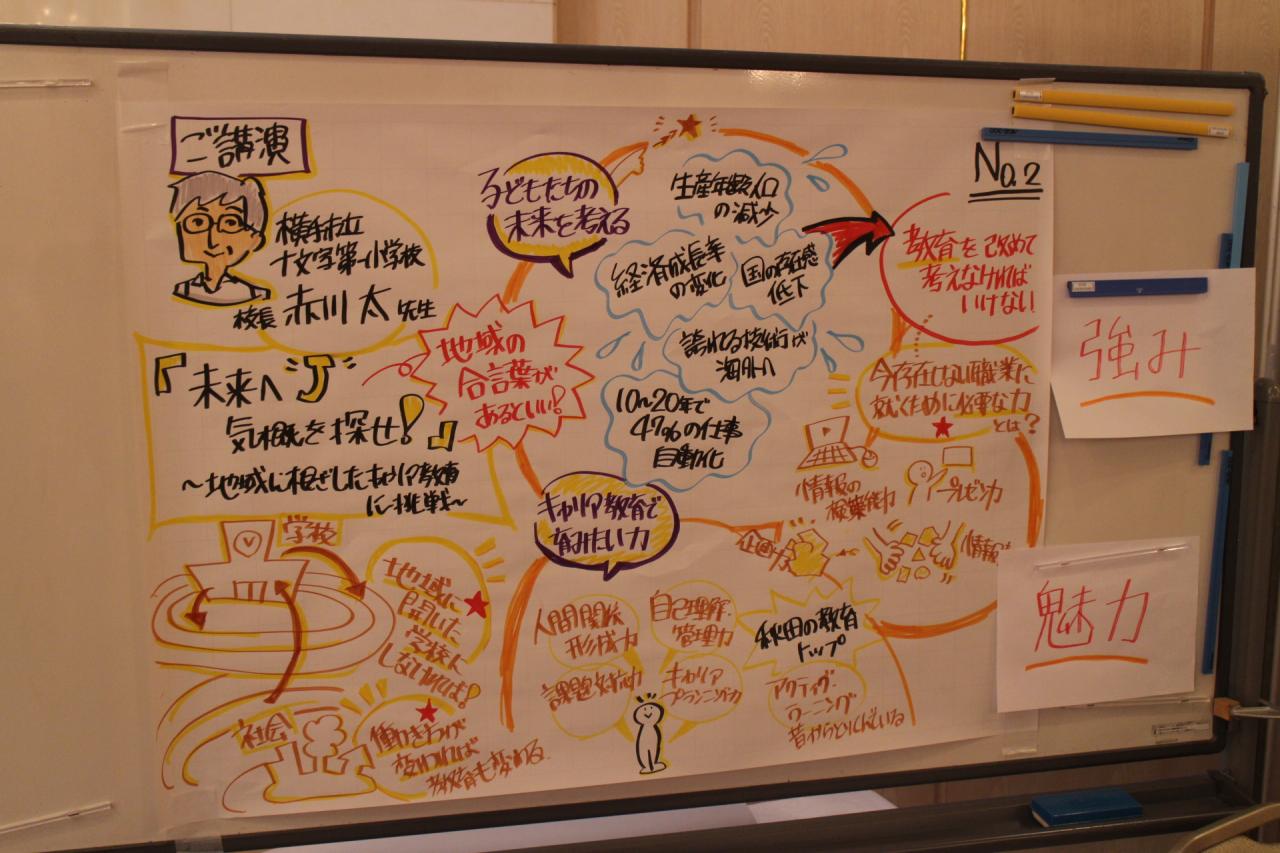 ご講演
横手市立
十文字第一小学校
校長 赤川 太 先生
『未来へ
気概を探せ!』
〜地域に根ざしたキャリア教育
に挑戦〜
地域の
合言葉が
あるといい!
学校
地域に
開いた
学校に
しなければ!
社会
働き方が
変われば
教育も変わる
子どもたちの
未来を考える
生産年齢人口
の減少
経済成長率
の変化
国の存在感
低下
誇れる技術が
海外へ
10〜20年で
47%の仕事
自動化
No.2
教育を改めて
考えなければ
いけない!
今存在しない職業に
就くために必要な力
とは?
情報の
編集能力
プレゼン力
企画力
情報
キャリア教育で
育みたい力
人間関係
形成力
自己理解・
管理力
課題対応力
キャリア
プランニング力
秋田の教育
トップ
アクティブ・
ラーニング
昔からとりくんでいる
強み
魅力